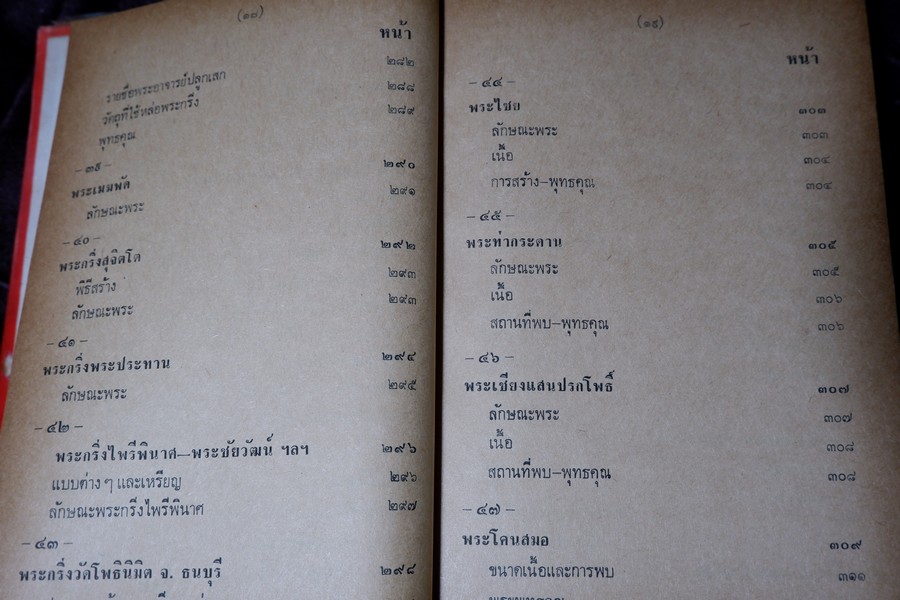 (๑๘)
หน้า
รายชื่อพระอาจารย์ปลุกเสก ๒๘๒
วัตถุที่ใช้หล่อพระกริ่ง ๒๘๘
พุทธคุณ ๒๘๙
– ๓๙ –
พระเมมพัด ๒๙๐
ลักษณะพระ ๒๙๑
– ๔๐ –
พระกริ่งสุจิตโต ๒๙๒
พิธีสร้าง ๒๙๓
ลักษณะพระ ๒๙๓
– ๔๑ –
พระกริ่งพระประทาน ๒๙๔
ลักษณะพระ ๒๙๕
– ๔๒ –
พระกริ่งไพรีพินาศ–พระชัยวัฒน์ ฯลฯ ๒๙๖
แบบต่างๆ และเหรียญ ๒๙๖
ลักษณะพระกริ่งไพรีพินาศ ๒๙๗
– ๔๓ –
พระกริ่งวัดโพธินิมิต จ. ธนบุรี ๒๙๘
(๑๙)
หน้า
– ๔๔ –
พระไชย ๓๐๓
ลักษณะพระ ๓๐๓
เนื้อ ๓๐๔
การสร้าง–พุทธคุณ ๓๐๔
– ๔๕ –
พระท่ากระดาน ๓๐๕
ลักษณะพระ ๓๐๕
เนื้อ ๓๐๖
สถานที่พบ–พุทธคุณ ๓๐๖
– ๔๖ –
พระเชียงแสนปรกโพธิ์ ๓๐๗
ลักษณะพระ ๓๐๗
เนื้อ ๓๐๘
สถานที่พบ–พุทธคุณ ๓๐๘
– ๔๗ –
พระโคนสมอ ๓๐๙
ขนาดเนื้อและการพบ ๓๑๑